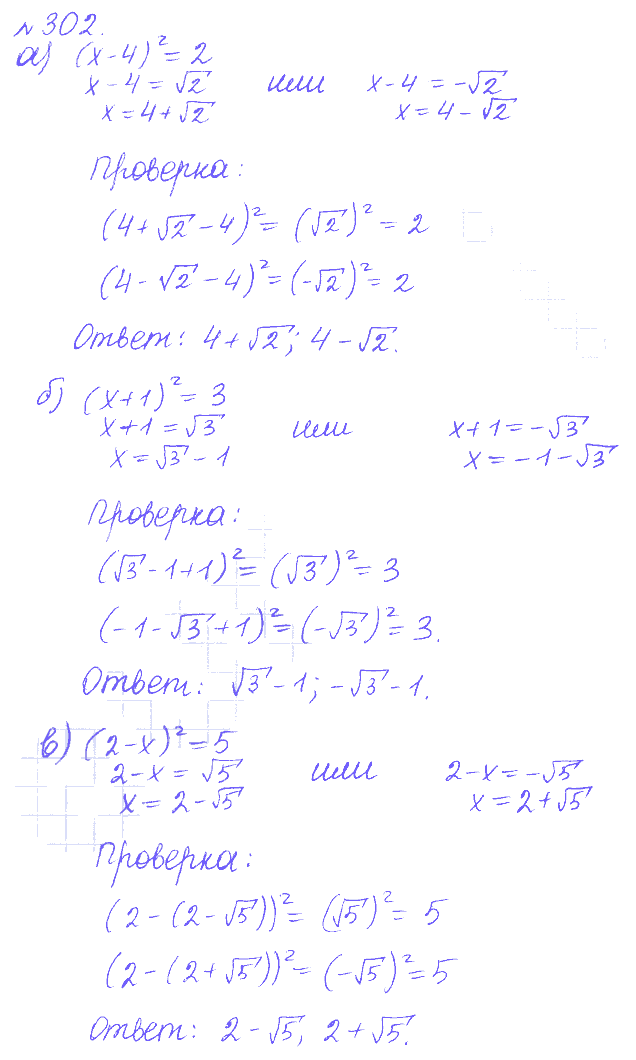 № 302.
а) (x-4)² = 2
x-4 = √2 или x-4 = -√2
x = 4+√2 x = 4-√2
Проверка:
(4+√2-4)² = (√2)² = 2
(4-√2-4)² = (-√2)² = 2
Ответ: 4+√2; 4-√2.
б) (x+1)² = 3
x+1 = √3 или x+1 = -√3
x = √3-1 x = -1-√3
Проверка:
(√3-1+1)² = (√3)² = 3
(-1-√3+1)² = (-√3)² = 3.
Ответ: √3-1; -√3-1.
в) (2-x)² = 5
2-x = √5 или 2-x = -√5
x = 2-√5 x = 2+√5
Проверка:
(2-(2-√5))² = (√5)² = 5
(2-(2+√5))² = (-√5)² = 5
Ответ: 2-√5, 2+√5.